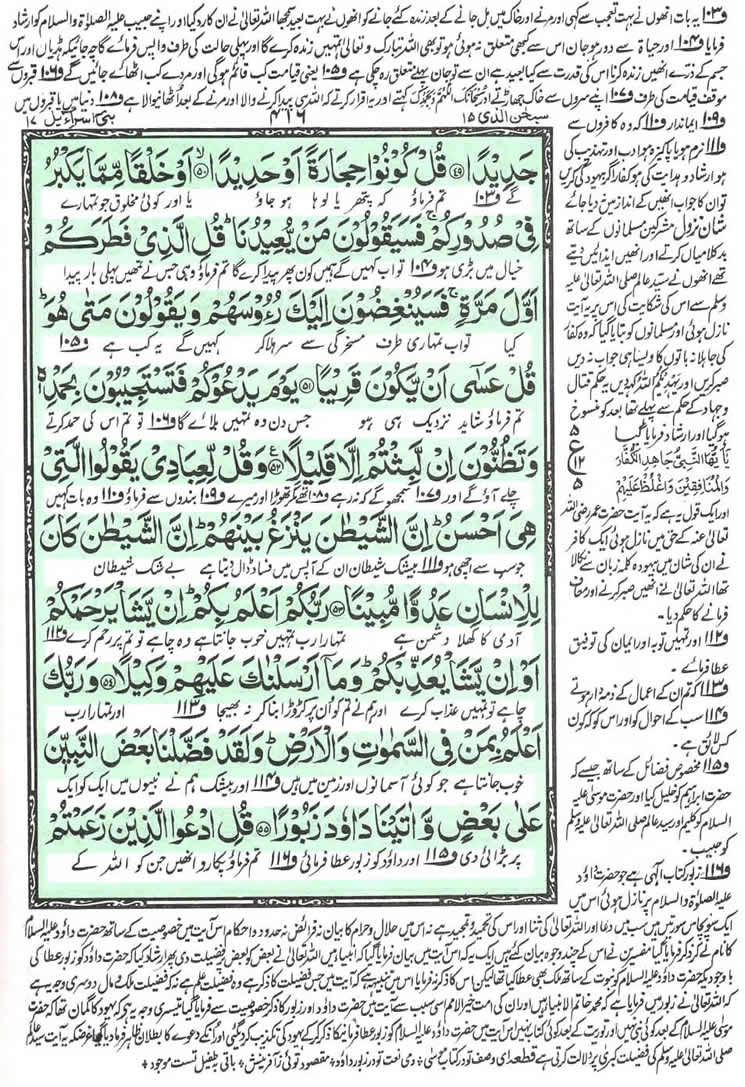 و۱۰۳ یہ بات انھوں نے بہت تعجب سے کہی اور مرنے اور خاک میں مل جانے کے بعد زندہ کئے جانے کو انھوں نے بہت بعید سمجھا اللہ تعالیٰ نے ان کا رد کیا اور اپنے حبیب علیہ الصلوٰۃ والسلام کو ارشاد
فرمایا و۱۰۴ اور حیاۃ سے دور ہو جان اس سے کبھی متعلق نہ ہوئی ہو تو بھی اللہ تبارک و تعالیٰ تمہیں زندہ کرے گا اور پہلی حالت کی طرف واپس فرمائے گا چہ جائیکہ ہڈیاں اور اس
جسم کے ذرے انھیں زندہ کرنا اس کی قدرت سے کیا بعید ہے ان سے تو جان پہلے متعلق رہ چکی ہے و۱۰۵ یعنی قیامت کب قائم ہوگی اور مردے کب اٹھائے جائیں گے و۱۰۶ قبروں سے
موقف قیامت کی طرف و۱۰۷ اپنے سروں سے خاک جھاڑتے اور سُبْحٰنَكَ اللّٰهُمَّ وَبِحَمْدِكَ کہتے اور یہ اقرار کرتے کہ اللہ ہی پیدا کرنے والا اور مرنے کے بعد اٹھانیوالا ہے و۱۰۸ دنیا میں یا قبروں میں
سبحٰن الذی ۱۵
۴۱۶
بنی اسراءیل ۱۷
جَدِیْدًا ﴿۴۹﴾ قُلْ كُوْنُوْا حِجَارَةً اَوْ حَدِیْدًا ﴿۵۰﴾ اَوْ خَلْقًا مِّمَّا یَكْبُرُ
گے و۱۰۳ تم فرماؤ کہ پتھر یا لوہا ہو جاؤ یا اور کوئی مخلوق جو تمہارے
فِیْ صُدُوْرِكُمْ ۚ فَسَیَقُوْلُوْنَ مَنْ یُّعِیْدُنَا ؕ قُلِ الَّذِیْ فَطَرَكُمْ
خیال میں بڑی ہو و۱۰۴ تو اب کہیں گے ہمیں کون پھر پیدا کرے گا تم فرماؤ وہی جس نے تمھیں پہلی بار پیدا
اَوَّلَ مَرَّةٍ ۚ فَسَیُنْغِضُوْنَ اِلَیْكَ رُءُوْسَهُمْ وَ یَقُوْلُوْنَ مَتٰی هُوَ ؕ
کیا تو اب تمہاری طرف مسخرگی سے سر ہلا کر کہیں گے یہ کب ہے و۱۰۵
قُلْ عَسٰۤی اَنْ یَّكُوْنَ قَرِیْبًا ﴿۵۱﴾ یَوْمَ یَدْعُوْكُمْ فَتَسْتَجِیْبُوْنَ بِحَمْدِهٖ
تم فرماؤ شاید نزدیک ہی ہو جس دن وہ تمہیں بلائے گا و۱۰۶ تو تم اس کی حمد کرتے
وَ تَظُنُّوْنَ اِنْ لَّبِثْتُمْ اِلَّا قَلِیْلًا ﴿۵۲﴾ وَ قُلْ لِّعِبَادِیْ یَقُوْلُوا الَّتِیْ
چلے آؤ گے اور و۱۰۷ سمجھو گے کہ نہ رہے و۱۰۸ تھے مگر تھوڑا اور میرے و۱۰۹ بندوں سے فرماؤ و۱۱۰ وہ بات کہیں
هِیَ اَحْسَنُ ؕ اِنَّ الشَّیْطٰنَ یَنْزَغُ بَیْنَهُمْ ؕ اِنَّ الشَّیْطٰنَ كَانَ
جو سب سے اچھی ہو و۱۱۱ بیشک شیطان ان کے آپس میں فساد ڈال دیتا ہے بے شک شیطان
لِلْاِنْسَانِ عَدُوًّا مُّبِیْنًا ﴿۵۳﴾ رَبُّكُمْ اَعْلَمُ بِكُمْ ؕ اِنْ یَّشَاْ یَرْحَمْكُمْ
آدمی کا کھلا دشمن ہے تمہارا رب تمہیں خوب جانتا ہے وہ چاہے تو تم پر رحم کرے و۱۱۲
اَوْ اِنْ یَّشَاْ یُعَذِّبْكُمْ ؕ وَ مَاۤ اَرْسَلْنٰكَ عَلَیْهِمْ وَكِیْلًا ﴿۵۴﴾ وَ رَبُّكَ
چاہے تو تمہیں عذاب کرے اور ہم نے تم کو ان پر کڑوڑا بنا کر نہ بھیجا و۱۱۳ اور تمہارا رب
اَعْلَمُ بِمَنْ فِی السَّمٰوٰتِ وَ الْاَرْضِ ؕ وَ لَقَدْ فَضَّلْنَا بَعْضَ النَّبِیّٖنَ
خوب جانتا ہے جو کوئی آسمانوں اور زمین میں ہیں و۱۱۴ اور بیشک ہم نے نبیوں میں ایک کو ایک
عَلٰی بَعْضٍ وَّ اٰتَیْنَا دَاوٗدَ زَبُوْرًا ﴿۵۵﴾ قُلِ ادْعُوا الَّذِیْنَ زَعَمْتُمْ
پر بڑائی دی و۱۱۵ اور داؤد کو زبور عطا فرمائی و۱۱۶ تم فرماؤ پکارو انھیں جن کو اللہ کے
۵
ع
۱۲
۵
و۱۰۹ ایماندار و۱۱۰ کہ وہ کافروں سے
و۱۱۱ نرم ہو یا پاکیزہ ہو ادب اور تہذیب کی
ہو ارشاد و ہدایت کی ہو کفار اگر بیہودگی کریں
تو ان کا جواب انھیں کے انداز میں نہ دیا جائے
شان نزول مشرکین مسلمانوں کے ساتھ
بدکلامیاں کرتے اور انھیں ایذائیں دیتے
تھے انھوں نے سید عالم صلی اللہ تعالیٰ علیہ
وسلم سے اس کی شکایت کی اس پر یہ آیت
نازل ہوئی اور مسلمانوں کو بتایا گیا کہ وہ کفار
کی جاہلانہ باتوں کا ویسا ہی جواب نہ دیں
صبر کریں اور یَهْدِیْكُمُ اللّٰهُ کہدیں یہ حکم قتال
و جہاد کے حکم سے پہلے تھا بعد کو منسوخ
ہو گیا اور ارشاد فرمایا گیا
یٰۤاَیُّهَا النَّبِیُّ جَاهِدِ الْكُفَّارَ
وَالْمُنَافِقِیْنَ وَاغْلُظْ عَلَیْهِمْ
اور ایک قول یہ ہے کہ یہ آیت حضرت عمر رضی اللہ
تعالیٰ عنہ کے حق میں نازل ہوئی ایک کافر
نے ان کی شان میں بیہودہ کلمہ زبان سے نکالا
تھا اللہ تعالیٰ نے انھیں صبر کرنے اور معاف
فرمانے کا حکم دیا۔
و۱۱۲ اور تمہیں توبہ اور ایمان کی توفیق
عطا فرمائے۔
و۱۱۳ کہ تم ان کے اعمال کے ذمہ دار ہوتے
و۱۱۴ سب کے احوال کو اور اس کو کہ کون
کس لائق ہے۔
و۱۱۵ مخصوص فضائل کے ساتھ جیسے کہ
حضرت ابراہیم کو خلیل کیا اور حضرت موسیٰ علیہ
السلام کو کلیم اور سید عالم صلی اللہ تعالیٰ علیہ وسلم
کو حبیب۔
و۱۱۶ زبور کتاب الٰہی ہے جو حضرت داؤد
علیہ الصلوٰۃ والسلام پر نازل ہوئی اس میں
ایک سو پچاس سورتیں ہیں سب میں دعا اور اللہ تعالیٰ کی ثنا اور اس کی تحمید و تمجید ہے نہ اس میں حلال و حرام کا بیان نہ فرائض نہ حدود و احکام اس آیت میں خصوصیت کے ساتھ حضرت داؤد علیہ السلام
کا نام لے کر ذکر فرمایا گیا مفسرین نے اس کے چند وجوہ بیان کئے ہیں ایک یہ کہ اس آیت میں بیان فرمایا گیا کہ انبیا میں اللہ تعالیٰ نے بعض کو بعض پر فضیلت دی پھر ارشاد کیا کہ حضرت داؤد کو زبور عطا کی
باوجودیکہ حضرت داؤد علیہ السلام کو نبوت کے ساتھ ملک بھی عطا کیا تھا لیکن اس کا ذکر نہ فرمایا اس میں تنبیہ ہے کہ آیت میں جس فضیلت کا ذکر ہے وہ فضیلت علم ہے نہ کہ فضیلت ملک و مال دوسری وجہ یہ ہے
کہ اللہ تعالیٰ نے زبور میں فرمایا ہے کہ محمد خاتم الانبیا ہیں اور ان کی امت خیر الامم اسی سبب سے آیت میں حضرت داؤد اور زبور کا ذکر خصوصیت سے فرمایا گیا تیسری وجہ یہ ہے کہ یہود کا گمان تھا کہ حضرت
موسیٰ علیہ السلام کے بعد کوئی نبی نہیں اور توریت کے بعد کوئی کتاب نہیں اس آیت میں حضرت داؤد علیہ السلام کو زبور عطا فرمانے کا ذکر کر کے یہود کی تکذیب کر دی گئی اور ان کے دعوے کا بطلان ظاہر فرما دیا گیا غرضکہ یہ آیت سید عالم
صلی اللہ تعالیٰ علیہ وسلم کی فضیلت کبریٰ پر دلالت کرتی ہے قطعہ اے وصف تو در کتاب موسیٰ ٭ وے نعت تو در زبور داؤد ٭ مقصود توئی ز آفرینش ٭ باقی بطفیل تست موجود ٭